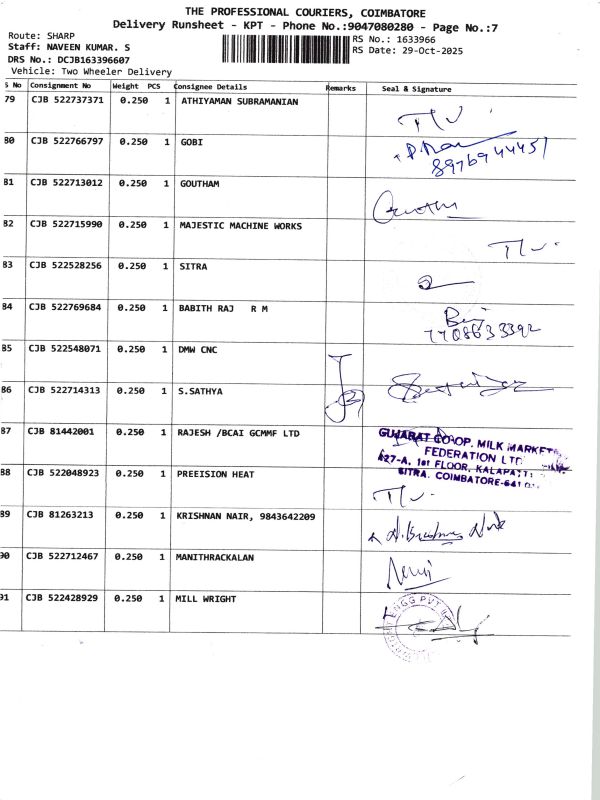 THE PROFESSIONAL COURIERS, COIMBATORE
Delivery Runsheet - KPT - Phone No.:9047080280 - Page No.:7
Route: SHARP
RS No.: 1633966
Staff: NAVEEN KUMAR. S
RS Date: 29-Oct-2025
DRS No.: DCJB163396607
Vehicle: Two Wheeler Delivery
S No Consignment No Weight PCS Consignee Details Remarks Seal & Signature
79 CJB 522737371 0.250 1 ATHIYAMAN SUBRAMANIAN
80 CJB 522766797 0.250 1 GOBI
8976944451
81 CJB 522713012 0.250 1 GOUTHAM
Goutham
82 CJB 522715990 0.250 1 MAJESTIC MACHINE WORKS
83 CJB 522528256 0.250 1 SITRA
84 CJB 522769684 0.250 1 BABITH RAJ R M
7708633392
85 CJB 522548071 0.250 1 DMW CNC
86 CJB 522714313 0.250 1 S.SATHYA
87 CJB 81442001 0.250 1 RAJESH /BCAI GCMMF LTD
GUJARAT CO-OP. MILK MARKET
FEDERATION LTD
427-A, 1st FLOOR, KALAPATTI
SITRA, COIMBATORE-641
88 CJB 522048923 0.250 1 PREEISION HEAT
89 CJB 81263213 0.250 1 KRISHNAN NAIR, 9843642209
90 CJB 522712467 0.250 1 MANITHRACKALAN
91 CJB 522428929 0.250 1 MILL WRIGHT
ENGG PVT